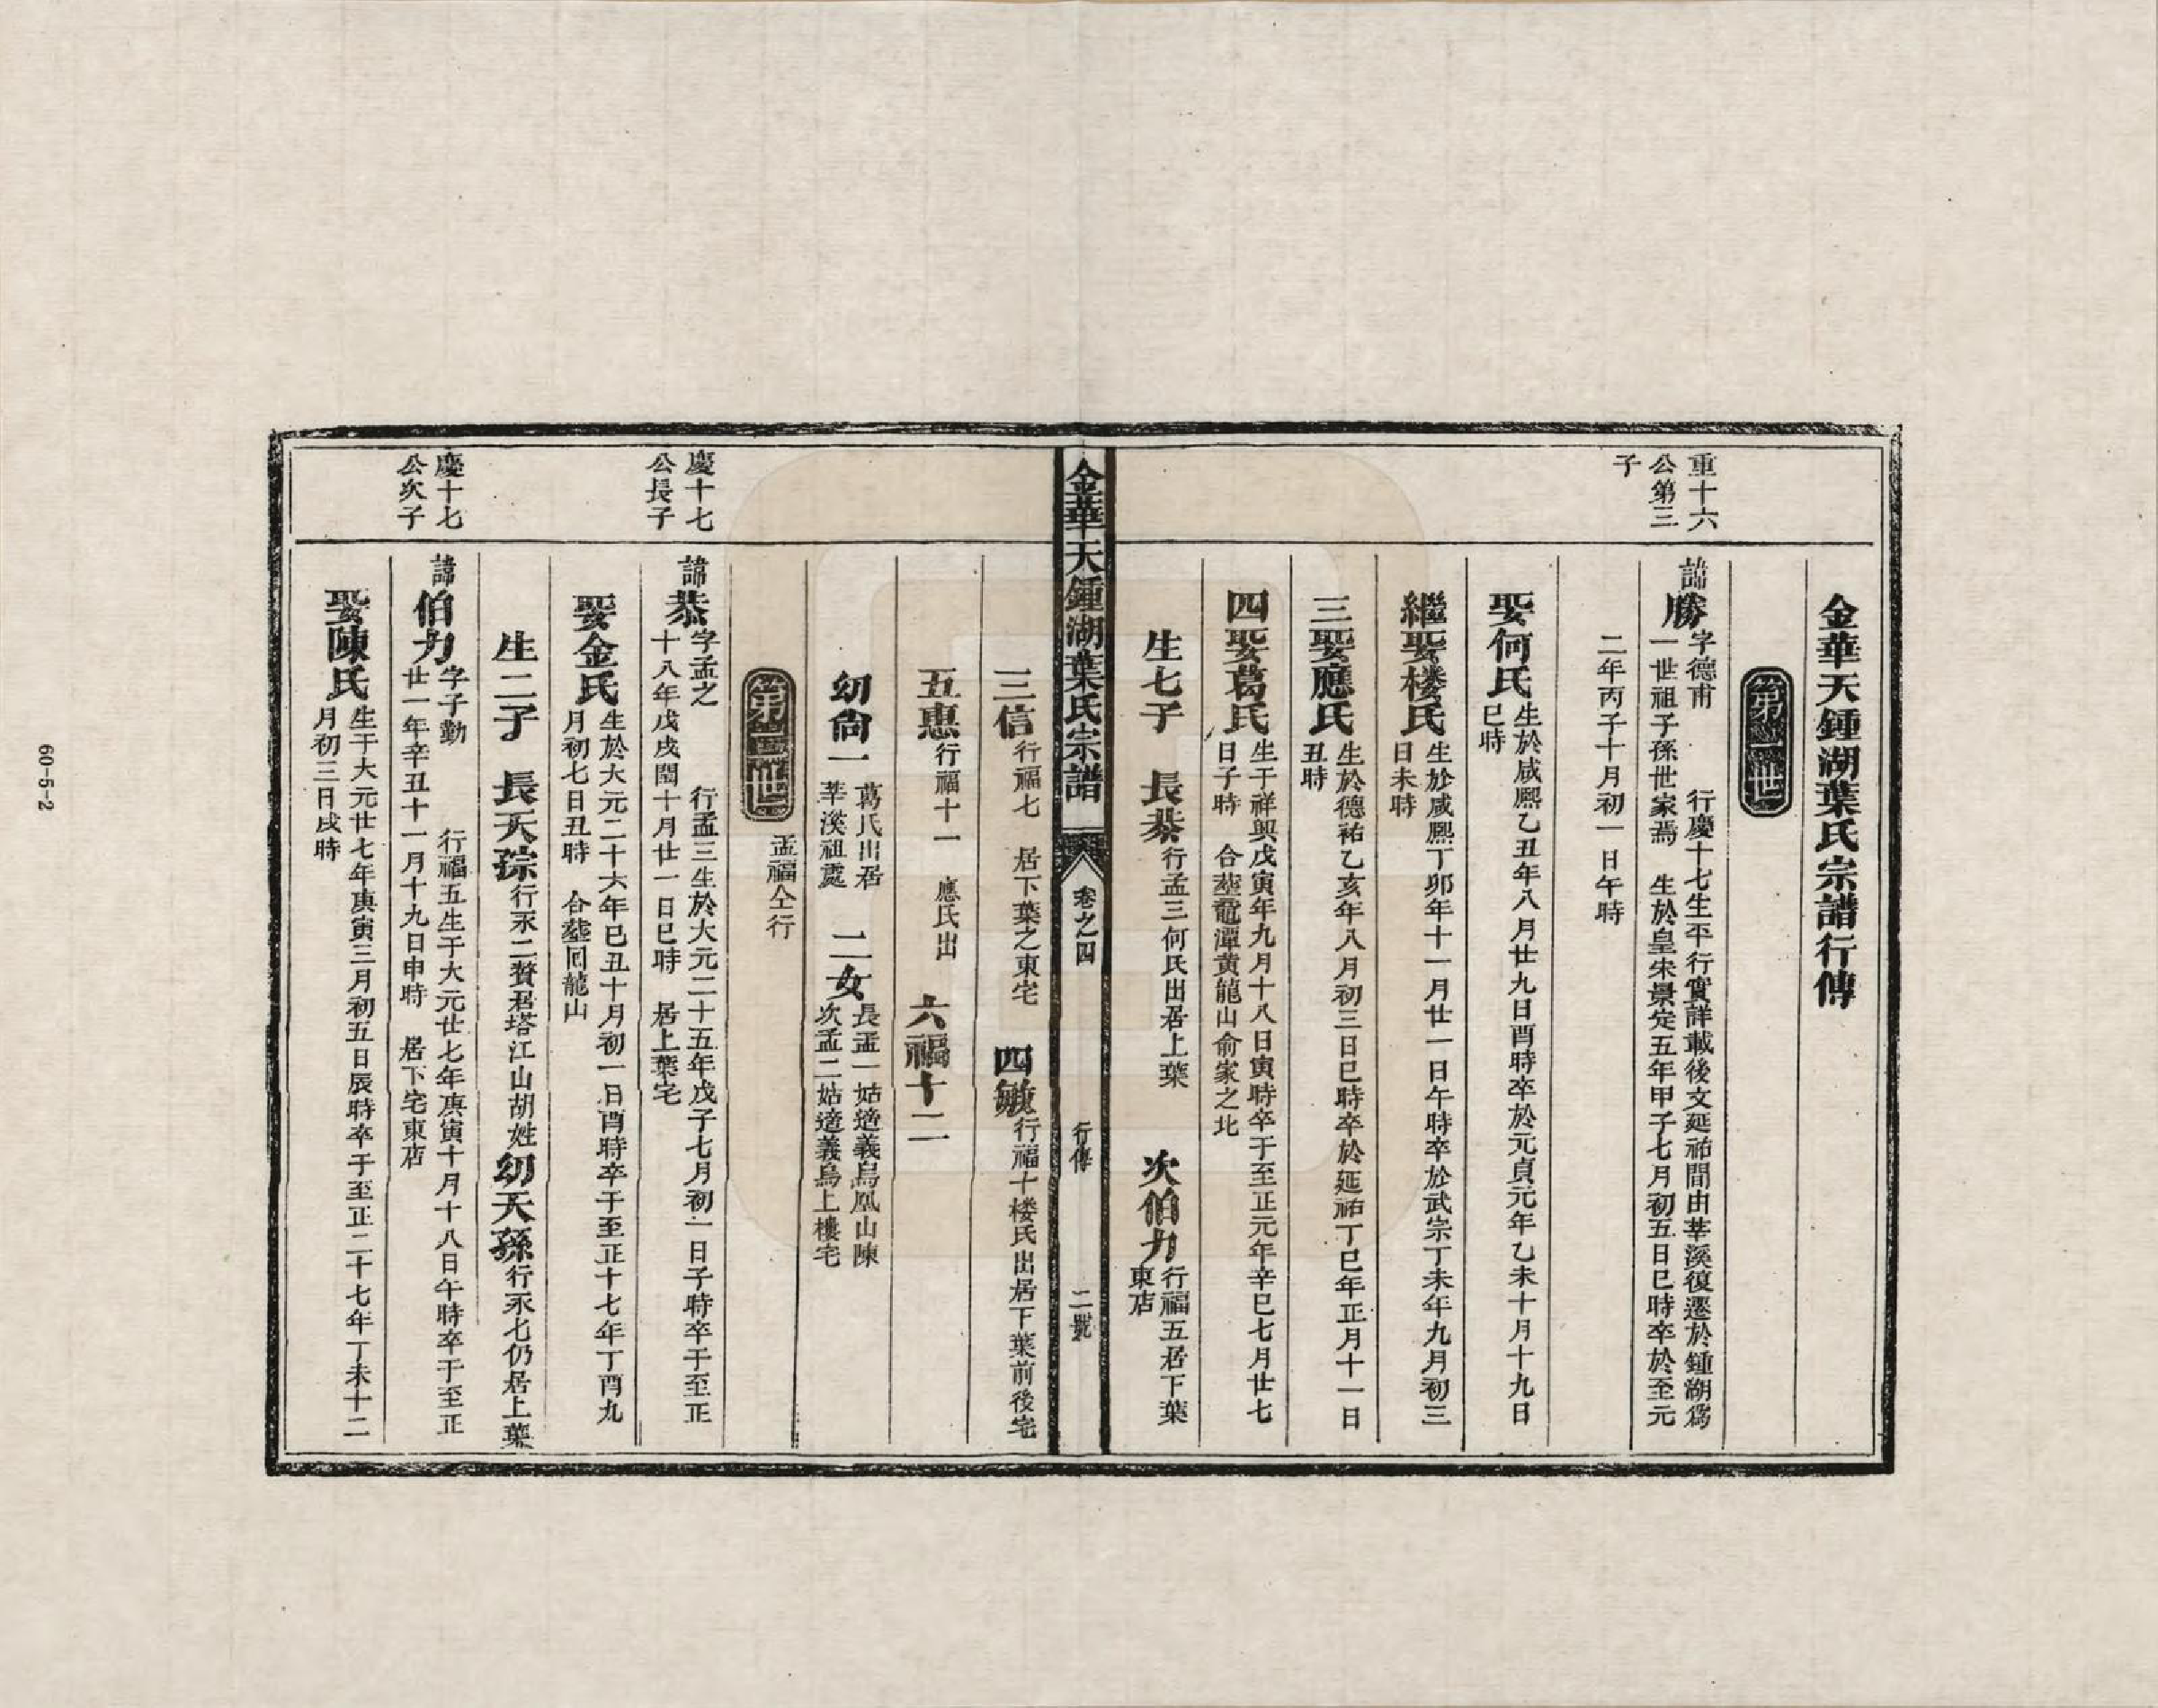 金華天鍾湖葉氏宗譜行傳
第一世
重十六
公第三
子
諱勝
字德甫　行慶十七生平行實詳載後文延祐間由莘溪復遷於鍾湖爲
一世祖子孫世家焉　生於皇宋景定五年甲子七月初五日巳時卒於至元
二年丙子十月初一日午時
娶何氏
生於咸熙乙丑年八月廿九日酉時卒於元貞元年乙未十月十九日
巳時
繼娶楼氏
生於咸熙丁卯年十一月廿一日午時卒於武宗丁未年九月初三
日未時
三娶應氏
生於德祐乙亥年八月初三日巳時卒於延祐丁巳年正月十一日
丑時
四娶葛氏
生于祥興戊寅年九月十八日寅時卒于至正元年辛巳七月廿七
日子時　合塟黿潭黃龍山俞家之北
生七子　長恭
行孟三何氏出居上葉
次伯力
行福五居下葉
東店
金華天鍾湖葉氏宗譜　卷之四　行傳　二號
三信
行福七　居下葉之東宅
四敏
行福十楼氏出居下葉前後宅
五惠
行福十一　應氏出
六福十二
幼尙一
葛氏出居
莘溪祖處
二女
長孟一姑適義烏凰山陳
次孟二姑適義烏上樓宅
第二世
孟福仝行
慶十七
公長子
諱恭
字孟之　行孟三生於大元二十五年戊子七月初一日子時卒于至正
十八年戊戌閏十月廿一日巳時　居上葉宅
娶金氏
生於大元二十六年己丑十月初一日酉時卒于至正十七年丁酉九
月初七日丑時　合塟回龍山
生二子　長天琮
行永二贅君塔江山胡姓
幼天孫
行永七仍居上葉
慶十七
公次子
諱伯力
字子勤　行福五生于大元廿七年庚寅十月十八日午時卒于至正
廿一年辛丑十一月十九日申時　居下宅東店
娶陳氏
生于大元廿七年庚寅三月初五日辰時卒于至正二十七年丁未十二
月初三日戌時
60-5-2